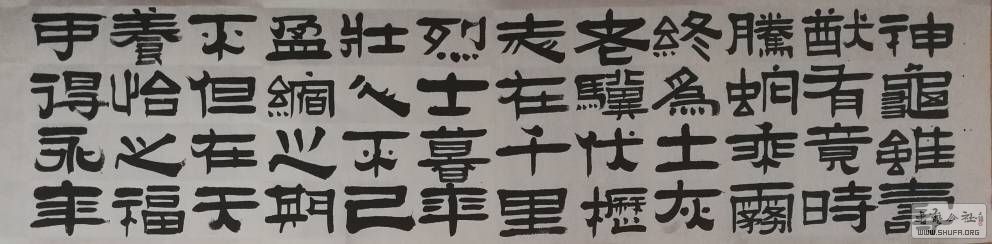 神龜雖壽
猷有竟時
騰蛇乘霧
終爲土灰
老驥伏櫪
志在千里
烈士暮年
壯心不已
盈縮之期
不但在天
養怡之福
可得永年
WWW.SHUFA.ORG